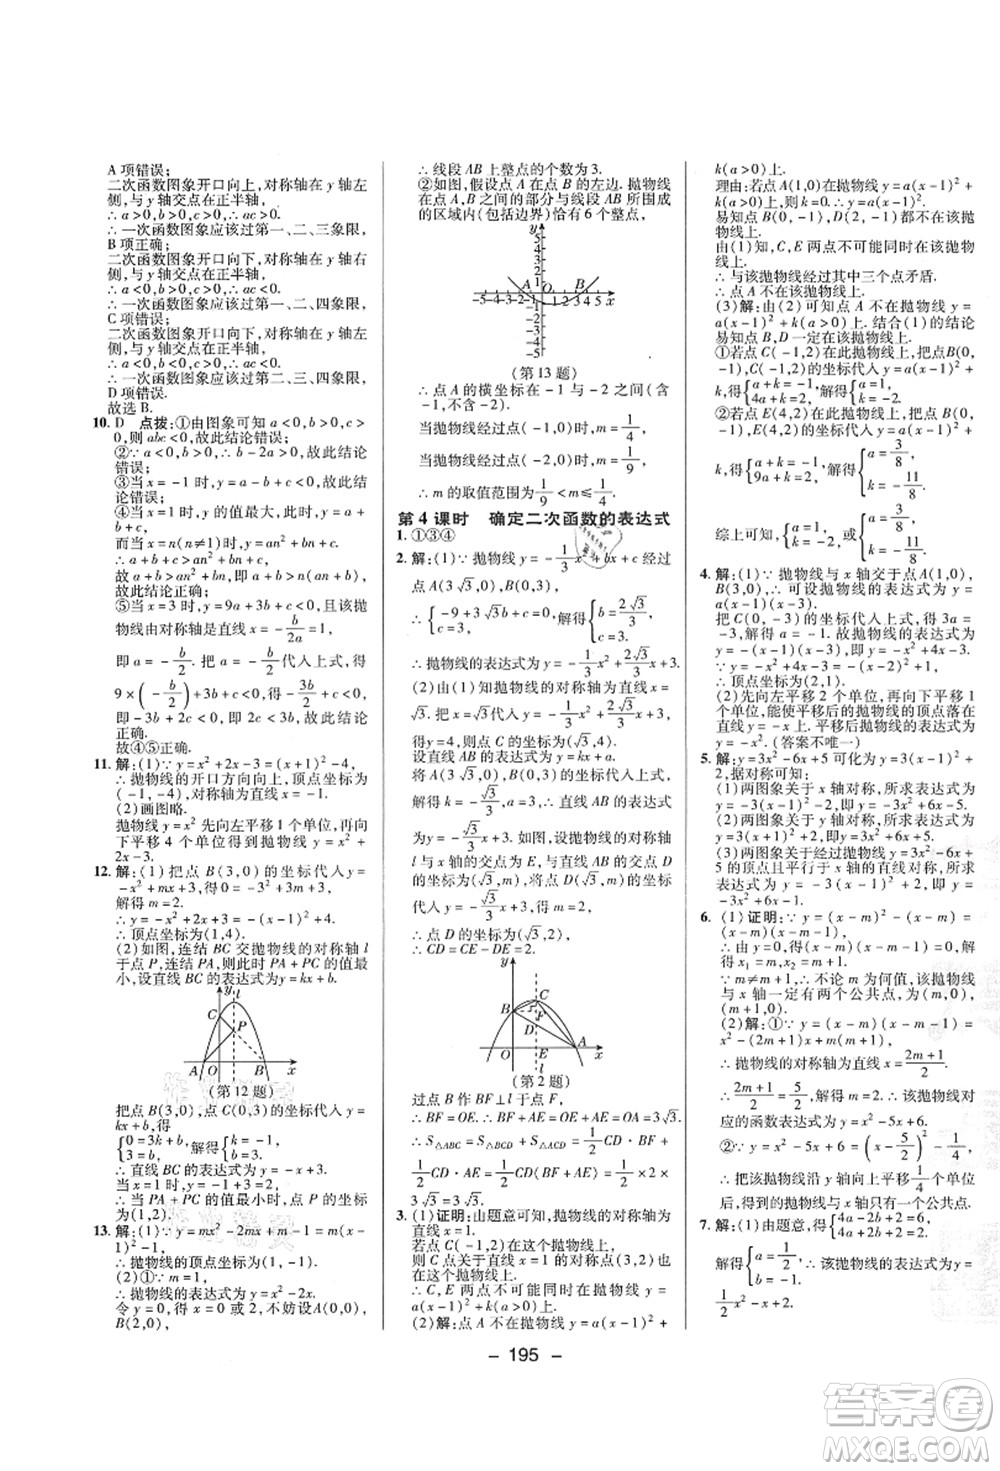 A 项错误;
二次函数图象开口向上,对称轴在 y 轴左
侧,与 y 轴交点在正半轴,
∴ a>0,b>0,c>0,
∴ 一次函数图象应该过第一、二、三象限,
B 项正确;
二次函数图象开口向下,对称轴在 y 轴右
侧,与 y 轴交点在正半轴,
∴ a<0,b>0,c>0,
∴ 一次函数图象应该过第一、二、四象限,
C 项错误;
二次函数图象开口向下,对称轴在 y 轴左
侧,与 y 轴交点在正半轴,
∴ a<0,b<0,c>0,
∴ 一次函数图象应该过第二、三、四象限,
D 项错误.
故选 B.
10. D 点拨:①由图象可知 a<0,b>0,c>
0,则 abc<0,故此结论错误;
②∵ a<0,b>0,∴ b-2a>0,故此结论
错误;
③当 x=-1 时,y=a-b+c<0,故此结
论错误;
④当 x=1 时,y 的值最大,此时,y=a+
b+c,
而当 x=n(n≠1)时,y=an²+bn+c,
∴ a+b+c>an²+bn+c,
故 a+b>an²+bn,即 a+b>n(an+b),
故此结论正确;
⑤当 x=3 时,y=9a+3b+c<0,且该抛
物线由对称轴是直线 x=-b/2a=1,
即 a=-b/2. 把 a=-b/2代入上式,得
9×(-b/2)+3b+c<0,
即-3b+2c<0,则 2c<3b,故此结论正确.
故④⑤正确.
11. 解:(1)∵ y=x²+2x-3=(x+1)²-4,
∴ 抛物线的开口方向向上,顶点坐标为
(-1,-4),对称轴为直线 x=-1.
(2)画图略.
抛物线 y=x² 先向左平移 1 个单位,再向
下平移 4 个单位得到抛物线 y=x²+
2x-3.
12. 解:(1)把点 B(3,0)的坐标代入抛物线
y=-x²+mx+3,得 0=-3²+3m+3,
解得 m=2,
∴ y=-x²+2x+3=-(x-1)²+4,
∴ 顶点坐标为(1,4).
(2)如图,连结 BC 交抛物线的对称轴 l
于点 P,连结 PA,则此时 PA+PC 的值最
小,设直线 BC 的表达式为 y=kx+b.
y
l
C
P
A
O
B
x
(第 12 题)
把点 B(3,0),点 C(0,3)的坐标代入 y=
kx+b,得
{0=3k+b,
3=b, 解得 {k=-1,
b=3,
∴ 直线 BC 的表达式为 y=-x+3.
当 x=1 时,y=-1+3=2,
∴ 当 PA+PC 的值最小时,点 P 的坐标
为(1,2).
13. 解:(1)∵ y=mx²-2mx+m-1=m(x-
1)²-1,∴ 抛物线的顶点坐标为(1,-1).
(2)①∵ m=1,
∴ 抛物线的表达式为 y=x²-2x.
令 y=0,得 x=0 或 2,不妨设A(0,0),
B(2,0),
∴ 线段 AB 上整点的个数为 3.
②如图,假设点 A 在点 B 的左边. 抛物线
在点 A,B 之间的部分与线段 AB 所围成
的区域内(包括边界)恰有 6 个整点,
y
5
4
3
2
1
A
O
B
-5-4-3-2-1
1 2 3 4 5 x
-1
-2
-3
-4
-5
(第 13 题)
∴ 点 A 的横坐标在-1 与-2 之间(含
-1,不含-2).
当抛物线经过点(-1,0)时,m=1/4,
当抛物线经过点(-2,0)时,m=1/9,
∴ m 的取值范围为1/9<m≤1/4.
第 4 课时 确定二次函数的表达式
1. ①③④
2. 解:(1)∵ 抛物线 y=-1/3x²+bx+c 经过
点 A(3√3,0),B(0,3),
∴ {-9+3√3b+c=0,
c=3, 解得 {b=2√3/3,
c=3.
∴ 抛物线的表达式为 y=-1/3x²+2√3/3x+3.
(2)由(1)知抛物线的对称轴为直线 x=
√3. 把 x=√3代入 y=-1/3x²+2√3/3x+3,
得 y=4,∴ 点 C 的坐标为(√3,4).
设直线 AB 的表达式为 y=kx+3,
将 A(3√3,0)的坐标代入,得 0=3√3k+3,
解得 k=-√3/3,∴ 直线 AB 的表达式
为 y=-√3/3x+3. 如图,设抛物线的对称轴
l 与 x 轴的交点为 E,设点 D 的坐标为
(√3,m),将点 D(√3,m)的坐标
代入,得 m=-√3/3×√3+3=2,
∴ 点 D 的坐标为(√3,2).
∴ CD=CE-DE=2.
y
C
B
F
D
O
E
A
x
(第 2 题)
过点 B 作 BF⊥l 于点 F,
∴ BF=OE. ∵ BF+AE=OE+AE=OA=3√3,
∴ S△ABC=S△BCD+S△ACD=1/2CD·BF+
1/2CD·AE=1/2CD(BF+AE)=1/2×2×
3√3=3√3.
3. (1)证明:由题意可知,抛物线的对称轴为
直线 x=1.
若点 C(-1,2)在该抛物线上,
则 C 点关于直线 x=1 的对称点(3,2)也
在这个抛物线上.
∴ C,E 两点不可能同时在抛物线 y=
a(x-1)²+k(a>0)上.
(2)解:点 A 不在抛物线 y=a(x-1)²+
k(a>0)上.
理由:若点 A(1,0)在抛物线 y=a(x-1)²+
k(a>0)上,则 k=0. ∴ y=a(x-1)².
易知点 B(0,-1),D(2,-1)都不在该抛
物线上.
由(1)可知,C,E 两点不可能同时在该抛
物线上.
∴ 与该抛物线经过其中三个点矛盾.
∴ 点 A 不在抛物线上.
(3)解:由(2)可知点 A 不在抛物线 y=
a(x-1)²+k(a>0)上. 结合(1)的结论
易知点 B,D 一定在该抛物线上.
①若点 C 在此抛物线上,把点 B(0,
-1),C(-1,2)的坐标代入 y=a(x-1)²+
k,得{a+k=-1,
4a+k=2,解得{a=1,
k=-2.
②若点 E(4,2)在此抛物线上,把点 B(0,
-1),E(4,2)的坐标代入 y=a(x-1)²+
k,得{a+k=-1,
9a+k=2,解得{a=3/8,
k=-11/8.
综上可知,{a=1,
k=-2 或{a=3/8,
k=-11/8.
4. 解:(1)∵ 抛物线与 x 轴交于点A(1,0),
B(3,0),∴ 可设抛物线的表达式为 y=
a(x-1)(x-3).
把 C(0,-3)的坐标代入,得 3a=
-3,解得 a=-1,故抛物线的表达式为
y=-(x-1)(x-3),即 y=-x²+4x-3.
∵ y=-x²+4x-3=-(x-2)²+1,
∴ 顶点坐标为(2,1).
(2)先向左平移 2 个单位,再向下平移 1 个
单位,能使平移后的抛物线的顶点落在
直线 y=-x 上. 平移后抛物线的表达式为
y=-x². (答案不唯一)
5. 解:y=3x²-6x+5 可化为 y=3(x-1)²+
2,据对称可知:
(1)两图象关于 x 轴对称,所求表达式为
y=-3x²+6x-5.
(2)两图象关于 y 轴对称,所求表达式为
y=3(x+1)²+2,即 y=3x²+6x+5.
(3)两图象关于经过抛物线 y=3x²-6x+
5 的顶点且平行于 x 轴的直线对称,所求
表达式为 y=-3(x-1)²+2,即 y=
-3x²+6x-1.
6. (1)证明:∵ y=(x-m)²-(x-m)=
(x-m)(x-m-1),
∴ 由 y=0 得(x-m)(x-m-1)=0,
解得 x₁=m,x₂=m+1.
∵ m≠m+1,∴ 不论 m 为何值,该抛物线
与 x 轴一定有两个公共点,为(m,0),
(m+1,0).
(2)解:①∵ y=(x-m)²-(x-m)=
x²-(2m+1)x+m(m+1),
∴ 抛物线的对称轴为直线 x=2m+1/2.
∴ 2m+1/2=5/2,解得 m=2,∴ 抛物线对
应的函数表达式为 y=x²-5x+6.
②∵ y=x²-5x+6=(x-5/2)²-1/4,
∴ 该抛物线沿 y 轴向上平移1/4个单位
后,得到的抛物线与 x 轴只有一个公共点.
7. 解:(1)由题意,得{4a-2b+2=6,
4a+2b+2=2,
解得{a=1/2,
b=-1.∴ 该抛物线的表达式为 y=
1/2x²-x+2.
- 195 -
答案圈
MXQE.COM